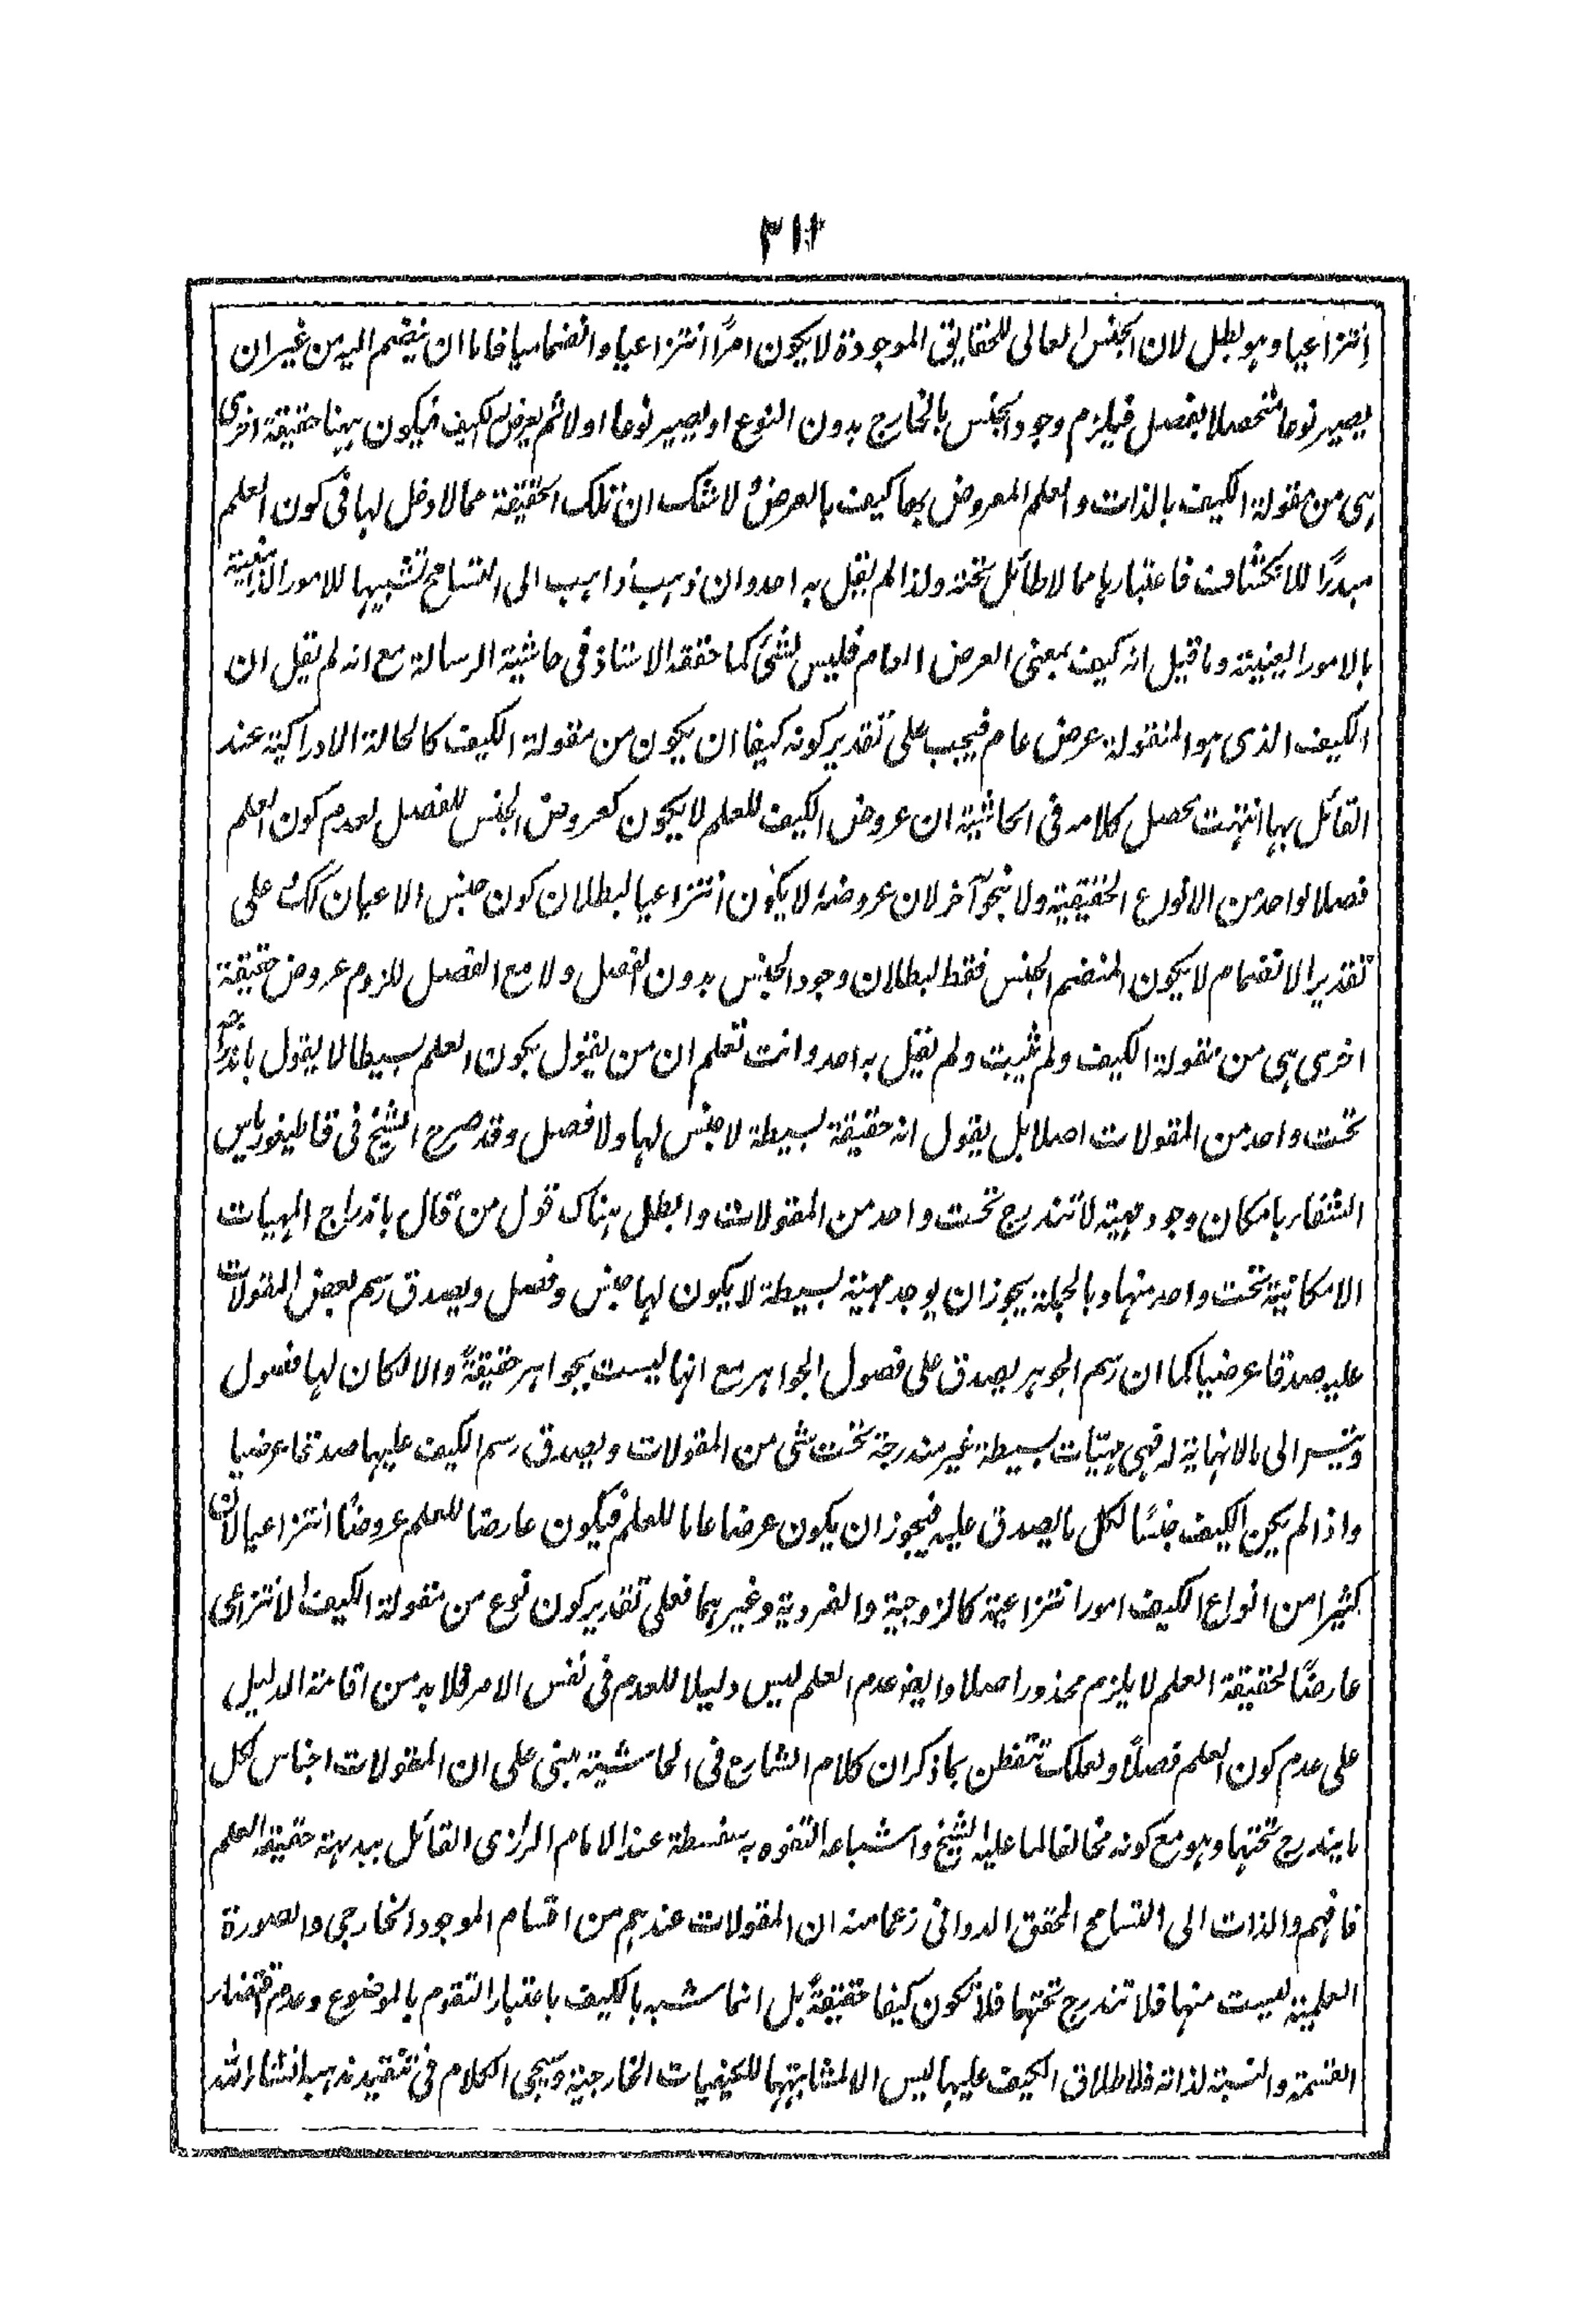 ٣١١
انتزاعيا وهو بطل لان الجنس العالى للحقايق الموجودة لا يكون امرًا انتزاعيا وانضماميا فاما ان ينضم اليه من غير ان
يصير نوعا متحصلا بفصل فيلزم وجود الجنس بالخارج بدون النوع او يصير نوعا اولا ثم يعرض الكيف فيكون ههنا حقيقة اخرى
هى من مقولة الكيف بالذات والعلم المعروض بها كيف بالعرض و لا شك ان تلك الحقيقة مما لا دخل لها فى كون العلم
مبدءًا للانكشاف فاعتبارها مما لا طائل تحته ولذا لم يقل به احد وان ذهب ذاهب الى التسامح تشبيها للامور الذهنية
بالامور العينية وما قيل انه كيف بمعنى العرض العام فليس بشئ كما حققه الاستاذ فى حاشية الرسالة مع انه لم يقل ان
الكيف الذى هو المقولة عرض عام فيجب على تقدير كونه كيفا ان يكون من مقولة الكيف كالحالة الادراكية عند
القائل بها انتهت محصل كلامه فى الحاشية ان عروض الكيف للعلم لا يكون كعروض الجنس للفصل لعدم كون العلم
فصلا لواحد من الانواع الحقيقية ولا بنحو آخر لان عروضه لا يكون انتزاعيا لبطلان كون جنس الاعيان كك على
تقدير الانضمام لا يكون المنضم الجنس فقط لبطلان وجود الجنس بدون الفصل ولا مع الفصل للزوم عروض حقيقة
اخرى هى من مقولة الكيف ولم يثبت ولم يقل به احد وانت تعلم ان من يقول بكون العلم بسيطا لا يقول باندراجه
تحت واحد من المقولات اصلا بل يقول انه حقيقة بسيطة لا جنس لها ولا فصل وقد صرح الشيخ فى قاطيغورياس
الشفاء بامكان وجود مهية لا تندرج تحت واحد من المقولات وابطل هناك قول من قال باندراج المهيات
الامكانية تحت واحد منها وبالجملة يجوز ان يوجد مهية بسيطة لا يكون لها جنس وفصل ويصدق رسم بعض المقولات
عليه صدقا عرضيا كما ان رسم الجوهر يصدق على فصول الجواهر مع انها ليست بجواهر حقيقةً والا لكان لها فصول
ويتسر الى ما لا نهاية له فهى مهيات بسيطة غير مندرجة تحت شى من المقولات ويصدق رسم الكيف عليها صدقا عرضيا
واذا لم يكن الكيف جنسًا لكل ما يصدق عليه فيجوز ان يكون عرضا عاما للعلم فيكون عارضا للعلم عروضًا انتزاعيا لان
كثيرا من انواع الكيف امور انتزاعية كالزوجية والفردية وغيرهما فعلى تقدير كون نوع من مقولة الكيف الانتزاعى
عارضًا لحقيقة العلم لا يلزم محذور اصلا وايضا عدم العلم ليس دليلا للعدم فى نفس الامر فلا بد من اقامة الدليل
على عدم كون العلم فصلاً ولعلك تتفطن بما ذكر ان كلام الشارح فى الحاشية مبنى على ان المقولات اجناس لكل
ما يندرج تحتها وهو مع كونه مخالفا لما عليه الشيخ واشباعه التفوه به سفسطة عند الامام الرازى القائل ببديهة حقيقة العلم
فافهم والذات الى التسامح المحقق الدوانى زعما منه ان المقولات عندهم من اقسام الموجود الخارجى والصورة
العلمية ليست منها فلا تندرج تحتها فلا تكون كيفا حقيقةً بل انما شبه بالكيف باعتبار التقوم بالموضوع وعدم اقتضاء
القسمة والنسبة لذاته فالاطلاق الكيف عليها ليس الا لمشابهتها للكيفيات الخارجية وسيجى الكلام فى تنقيد مذهبه انشاء الله